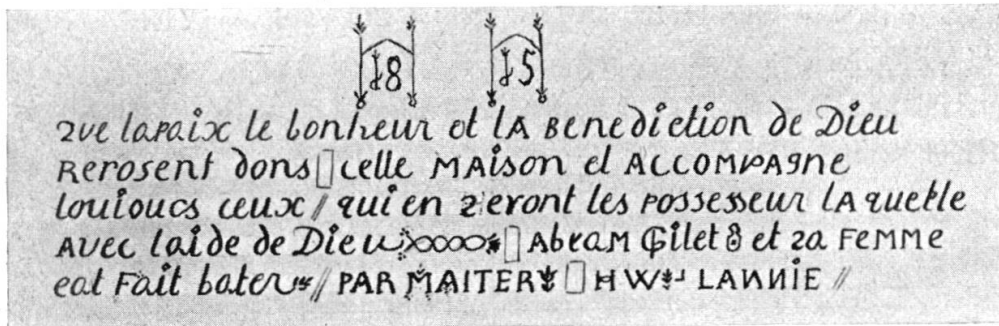 18 15
2ue lapaix le bonheur et lA Benediction de Dieu
Rerosent dons celle MAison el ACCOMPAgne
loutoucs ceux // qui en 2eront les possesseur lA quelle
AVEC laide de Dieu AbraM Gilet 8 et 2a FeMMe
eat Fait bater // PAR MAITER HW LANNIE //